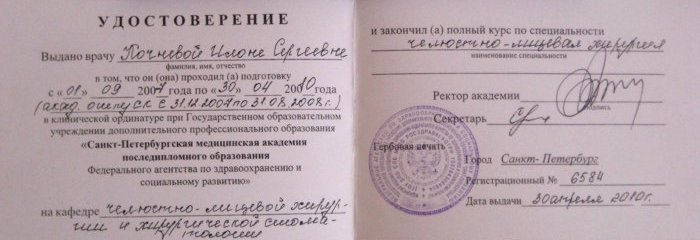 УДОСТОВЕРЕНИЕ
Выдано врачу Кочневой Илоне Сергеевне
фамилия, имя, отчество
в том, что он (она) проходил (а) подготовку
с «01» 09 2007 года по «30» 04 2010 года
(акад. отпуск с 31.12.2007 по 31.08.2008г.)
в клинической ординатуре при Государственном образовательном
учреждении дополнительного профессионального образования
«Санкт-Петербургская медицинская академия
последипломного образования
Федерального агентства по здравоохранению и
социальному развитию»
на кафедре челюстно-лицевой хирур-
гии и хирургической стома-
тологии
и закончил (а) полный курс по специальности
челюстно-лицевая хирургия
наименование специальности
Ректор академии
подпись
Секретарь
Гербовая печать
Город Санкт-Петербург
Регистрационный № 6584
Дата выдачи 30 апреля 2010г.